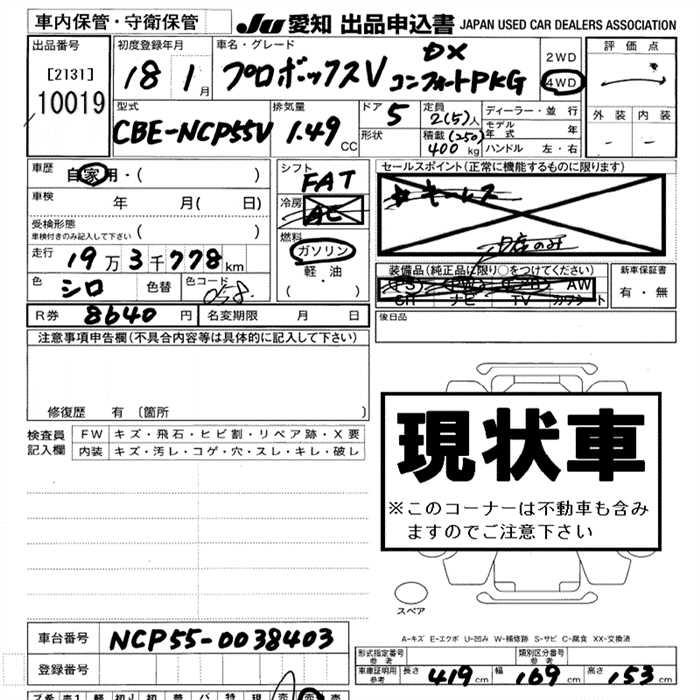 車内保管・守衛保管
JU 愛知 出品申込書 JAPAN USED CAR DEALERS ASSOCIATION
出品番号
[2131]
10019
初度登録年月
18 1月
車名・グレード
プロボックスV DX コンフォートPKG
2WD
4WD
評価点
外装 内装
型式
CBE-NCP55V
排気量
1.49 CC
ドア 5
形状
定員 2(5)人
積載 (250) 400 kg
ディーラー・並行
モデル年式 年
ハンドル 左・右
車歴 自家用・( )
車検 年 月( 日)
受検形態
車検付きのみ記入して下さい ( )
走行 19万3千778km
色 シロ 色替 色コード 058
R券 8640円 名変期限 月 日
シフト
FAT
冷房
AC
燃料
ガソリン
軽・油
( ・ )
セールスポイント(正常に機能するものに限ります)
キーレス
装備品(純正品に限り○をつけてください)
PS PW AW
ナビ TV カワシート
新車保証書
有・無
後日品
注意事項申告欄(不具合内容等は具体的に記入して下さい)
修復歴 有 〔箇所 〕
検査員記入欄
FW キズ・飛石・ヒビ割・リペア跡・X要
内装 キズ・汚レ・コゲ・穴・スレ・キレ・破レ
現状車
※このコーナーは不動車も含み
ますのでご注意下さい
スペア
A-キズ E-エクボ U-凹み W-補修跡 S-サビ C-腐食 XX-交換済
車台番号 NCP55-0038403
登録番号
形式指定番号 参考
類別区分番号 参考
車庫証明用 参考 長さ 419cm 幅 169cm 高さ 153cm